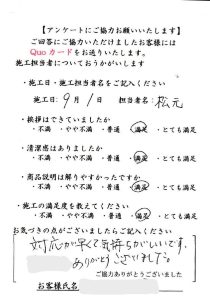 【アンケートにご協力お願いいたします】
ご回答にご協力いただけましたお客様には
Quoカードをお送りいたします。
施工担当者についておうかがいします
・施工日・施工担当者名をご記入ください
施工日:9月1日 担当者名:松元
・挨拶はできていましたか
・不満 ・やや不満 ・普通 ・満足 ・とても満足
・清潔感はありましたか
・不満 ・やや不満 ・普通 ・満足 ・とても満足
・商品説明は解りやすかったですか
・不満 ・やや不満 ・普通 ・満足 ・とても満足
・施工の満足度を教えてください
・不満 ・やや不満 ・普通 ・満足 ・とても満足
お気づきの点がございましたらご記入ください
対応が早くて気持ちがいいです。
ありがとうございました。
ご協力ありがとうございました
お客様氏名